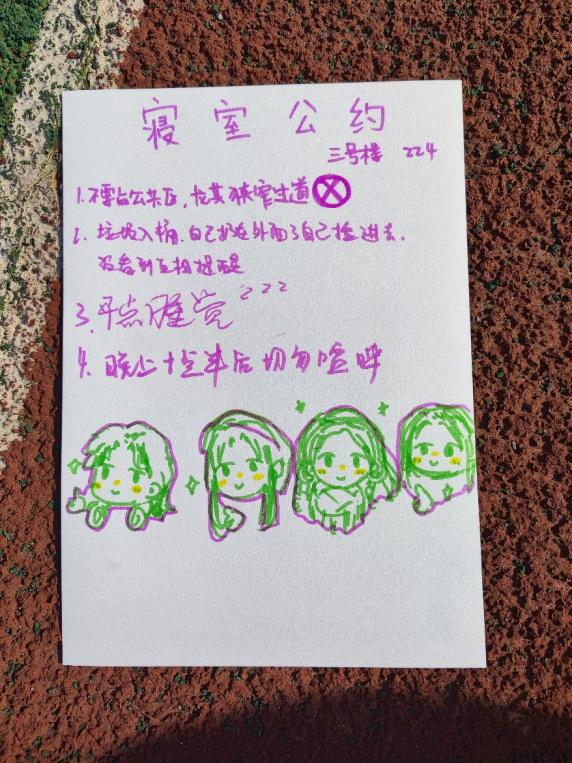 寝室公约
三号楼 224
1.不要占公共区,尤其狭窄过道
2.垃圾入桶,自己扔在外面了自己捡进去,
没看到互相提醒
3.早点睡觉zzz
4.晚上十点半后切勿喧哗